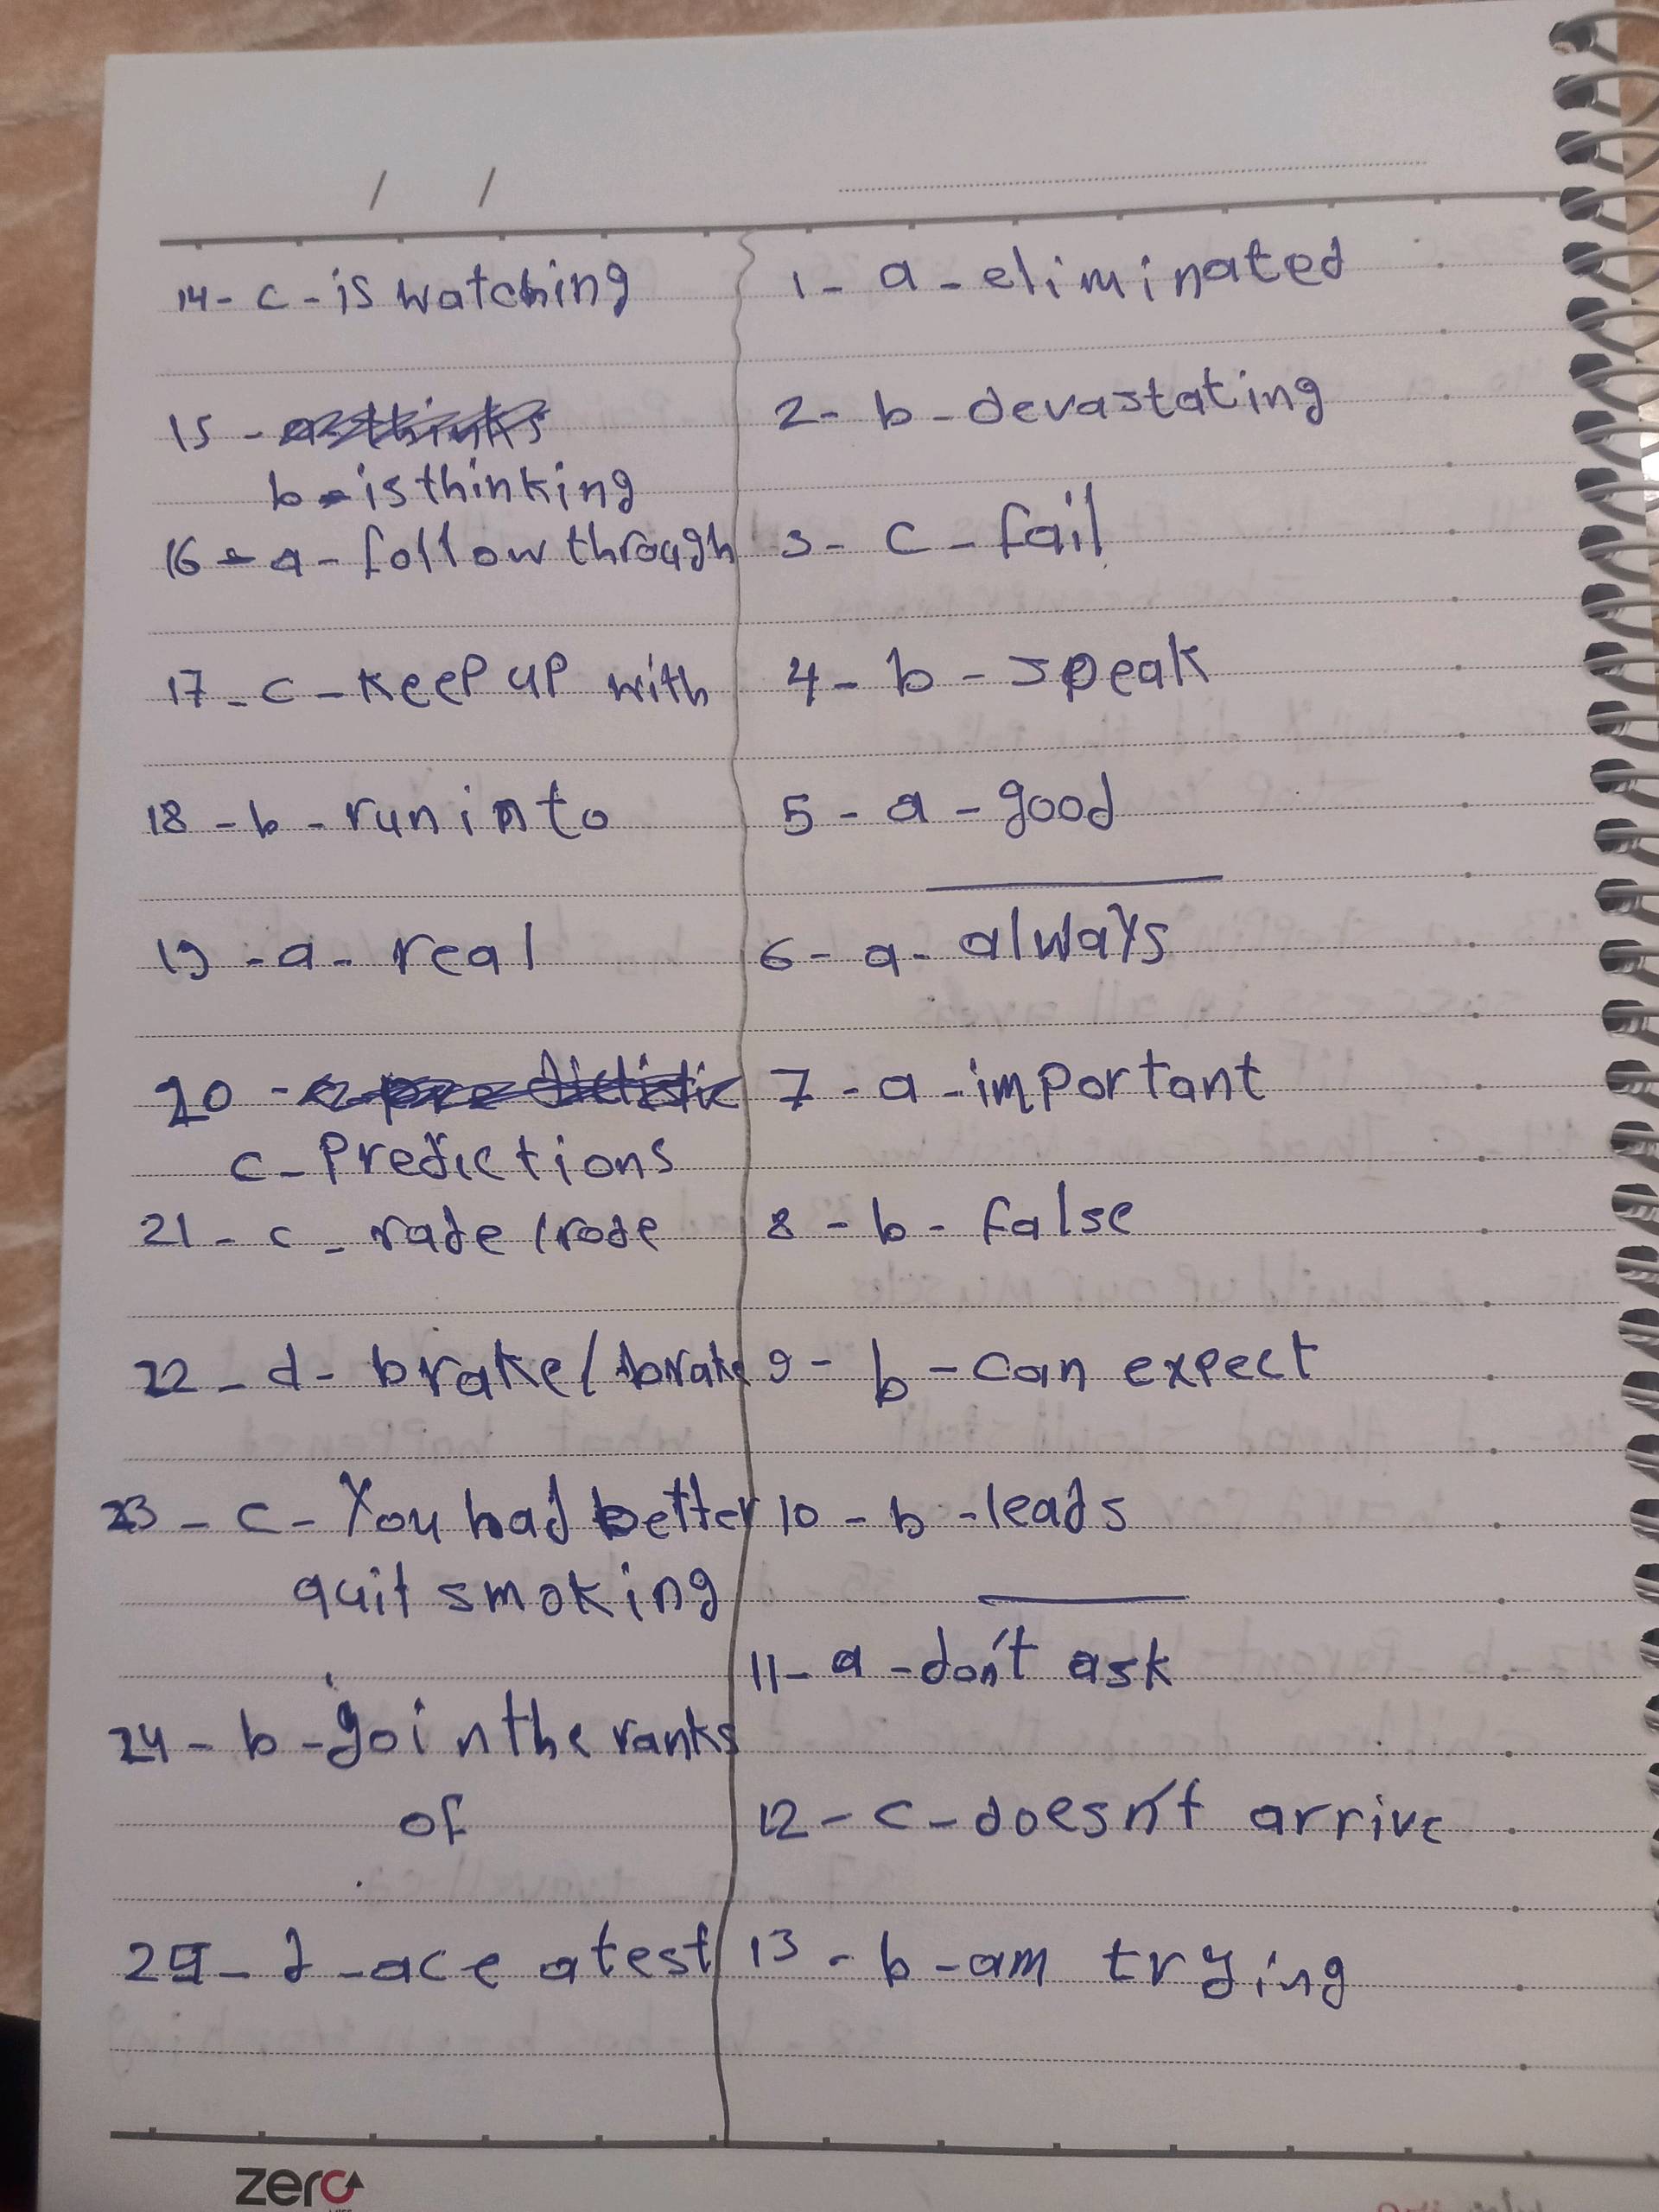 / /
1- a - eliminated
2- b - devastating
3- c - fail
4- b - speak
5- a - good
6- a- always
7- a -important
8- b- false
9- b - can expect
10- b -leads
11- a -don't ask
12- c -doesn't arrive
13- b -am trying
14- c -is watching
15 -
b- is thinking
16 - a - follow through
17- c - keep up with
18- b - run into
19- a - real
20 -
c- Predictions
21- c - rade / rode
22- d- brake / brake
23- c- You had better
quit smoking
24- b - goin the ranks
of
25- d -ace a test
zero